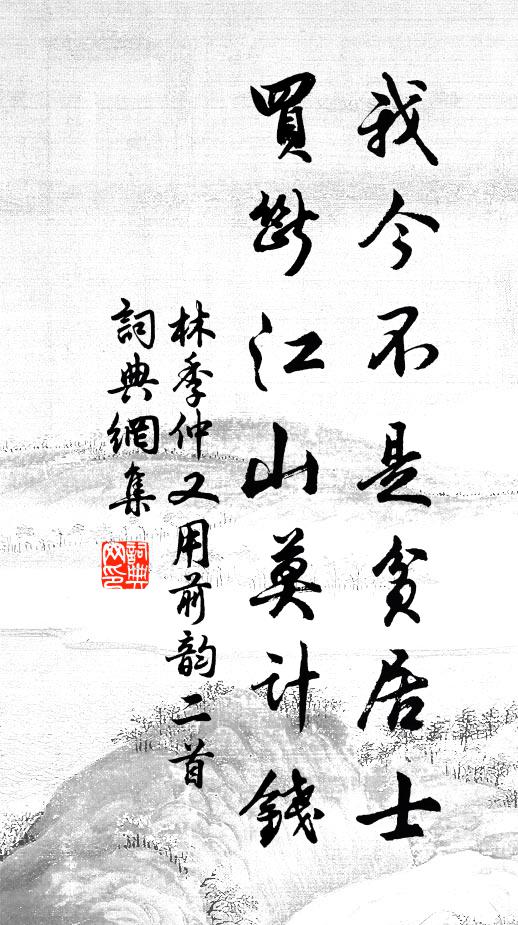 我今不是貧居士
買斷江山莫計錢
林季仲又用前韵二首
詞典網集
詞典
网印